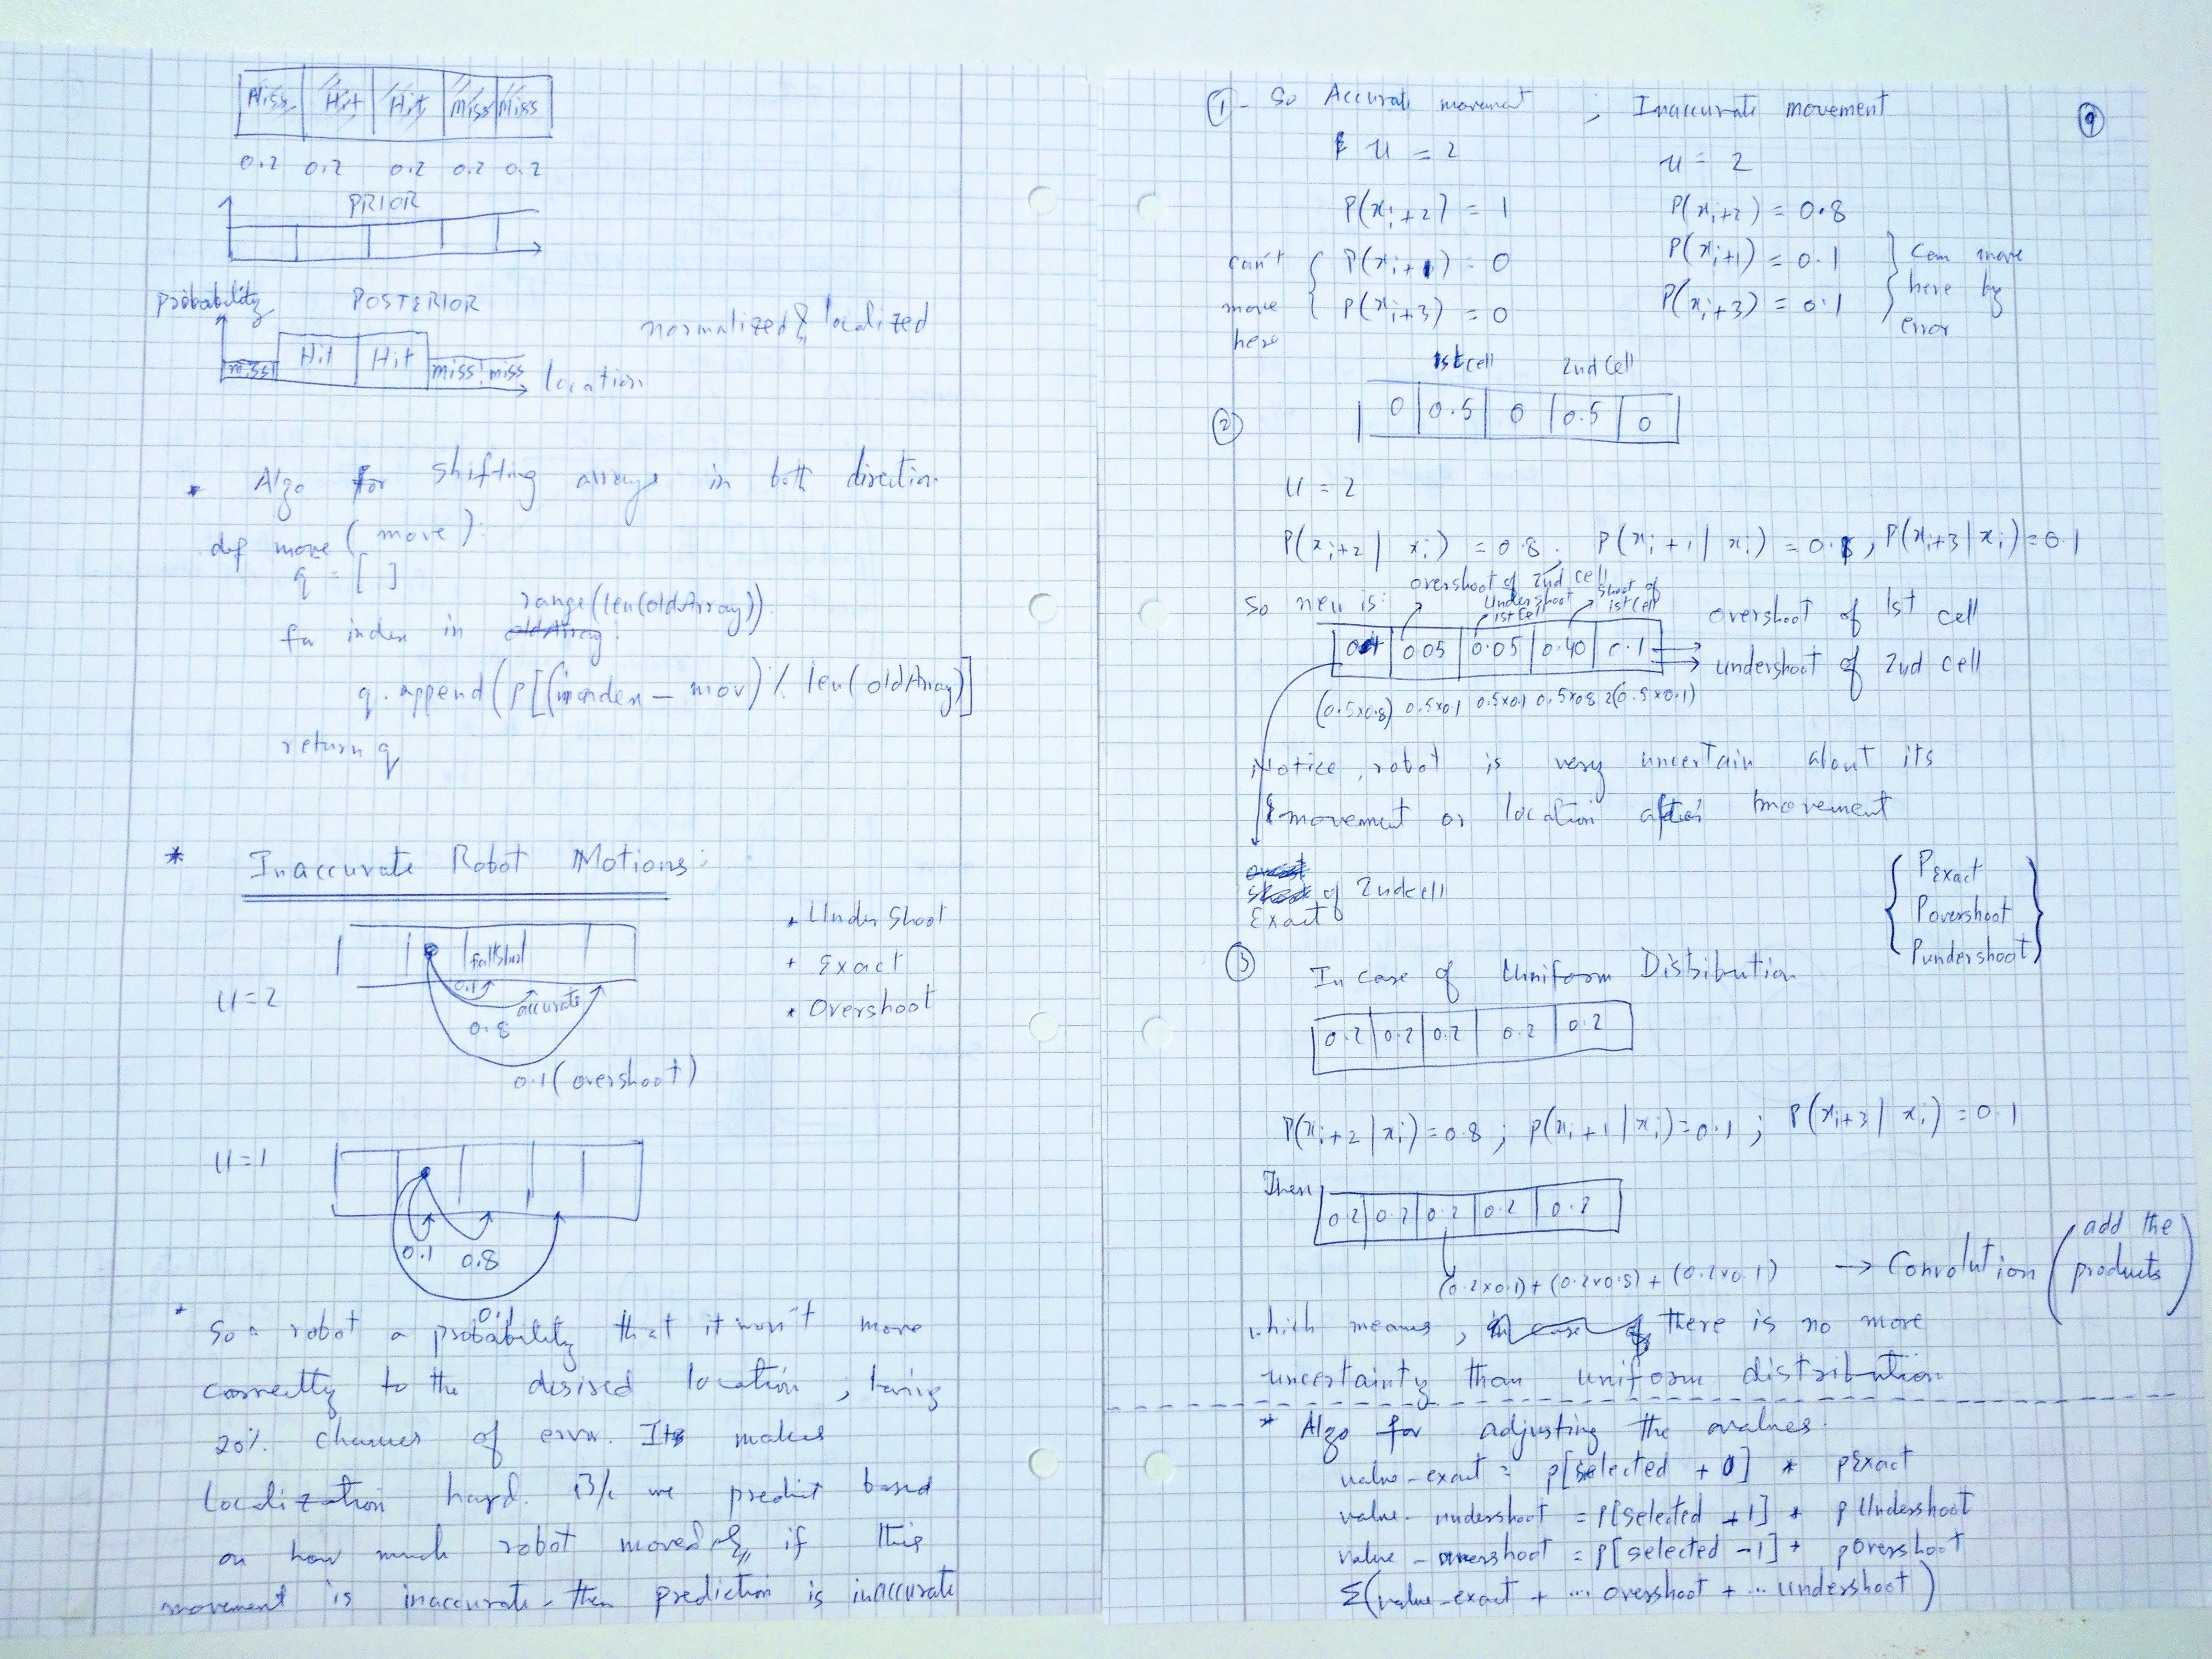 Miss Hit Hit Miss Miss
0.2 0.2 0.2 0.2 0.2
PRIOR
probability POSTERIOR
normalized & localized
miss Hit Hit miss miss
location
* Algo for shifting arrays in both direction
def move ( move ) :
q = [ ]
range(len(oldArray))
for index in oldArray:
q.append(p[(index - mov) % len(oldArray)]
return q
* Inaccurate Robot Motions:
* Under Shoot
fallshort
0.1
+ Exact
U = 2
accurate
* Overshoot
0.8
0.1 (overshoot)
U = 1
0.1 0.8
0.1
* So a robot a probability that it won't move
correctly to the desired location, having
20% chances of error. Its makes
Localization hard. B/c we predict based
on how much robot moved & if this
movement is inaccurate - then prediction is inaccurate
9
① - So Accurate movement ; Inaccurate movement
U = 2 U = 2
P(xi+2) = 1 P(xi+2) = 0.8
can't move here { P(xi+1) = 0 P(xi+1) = 0.1 } Can move here by error
P(xi+3) = 0 P(xi+3) = 0.1
1st cell 2nd Cell
② 0 0.5 0 0.5 0
U = 2
P(xi+2 | xi) = 0.8, P(xi+1 | xi) = 0.1, P(xi+3 | xi) = 0.1
overshoot of 2nd cell
Undershoot 1st cell
shoot of 1st cell
So new is:
0.4 0.05 0.05 0.40 0.1
overshoot of 1st cell
undershoot of 2nd cell
(0.5x0.8) 0.5x0.1 0.5x0.1 0.5x0.8 2(0.5x0.1)
Notice, robot is very uncertain about its
movement or location after movement
of 2nd cell
Exact
{ PExact
Povershoot
Pundershoot }
③ In case of Uniform Distribution
0.2 0.2 0.2 0.2 0.2
P(xi+2 | xi) = 0.8 ; P(xi+1 | xi) = 0.1 ; P(xi+3 | xi) = 0.1
Then
0.2 0.2 0.2 0.2 0.2
(0.2x0.1) + (0.2x0.8) + (0.2x0.1) → Convolution (add the products)
which means, in case of there is no more
uncertainty than uniform distribution
* Algo for adjusting the values.
value-exact = p[selected + 0] * pExact
value - undershoot = p[selected + 1] * pUndershoot
value - overshoot = p[selected - 1] * pOvershoot
Σ(value-exact + ... overshoot + ... undershoot)